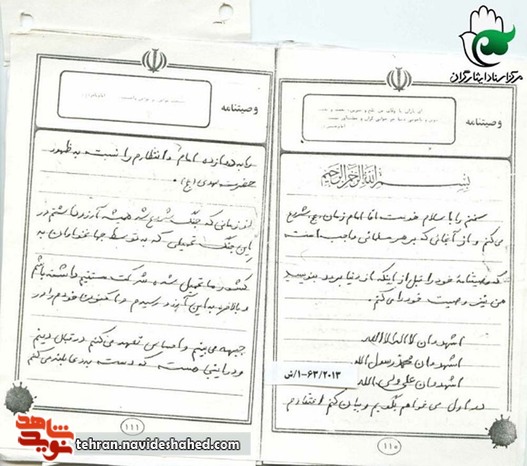 مرکز اسناد ایثارگران
وصیتنامه
بسم الله الرحمن الرحیم
سخنم را با سلام خدمت آقا امام زمان (عج) شروع
می کنم و از آنجائی که بر هر مسلمانی واجب است
که وصیتنامه خود را قبل از اینکه از دنیا برود بنویسد
من نیز وصیت خود را می کنم.
اشهد ان لا اله الا الله
اشهد ان محمد رسول الله
اشهد ان علی ولی الله
در اول می خواهم بگویم و بیان کنم اعتقادم
۱۱۰
۱-۶۳/۲۰۱۳/ش
وصیتنامه
را به دوازده امام و انتظارم را نسبت به ظهور
حضرت مهدی (عج).
از زمانی که جنگ شروع شد همیشه آرزو داشتم در
این جنگ تحمیلی که به توسط جهانخواران به
کشور ما تحمیل شده شرکت مستقیم داشته باشم
و بالاخره به این آرزو رسیدم و اکنون خودم را در
جبهه می بینم و احساس تعهد می کنم در قبال دینم
و در اینجا هست که دست به دعا بلند می کنم
۱۱۱
نوید شاهد
tehran.navideshahed.com